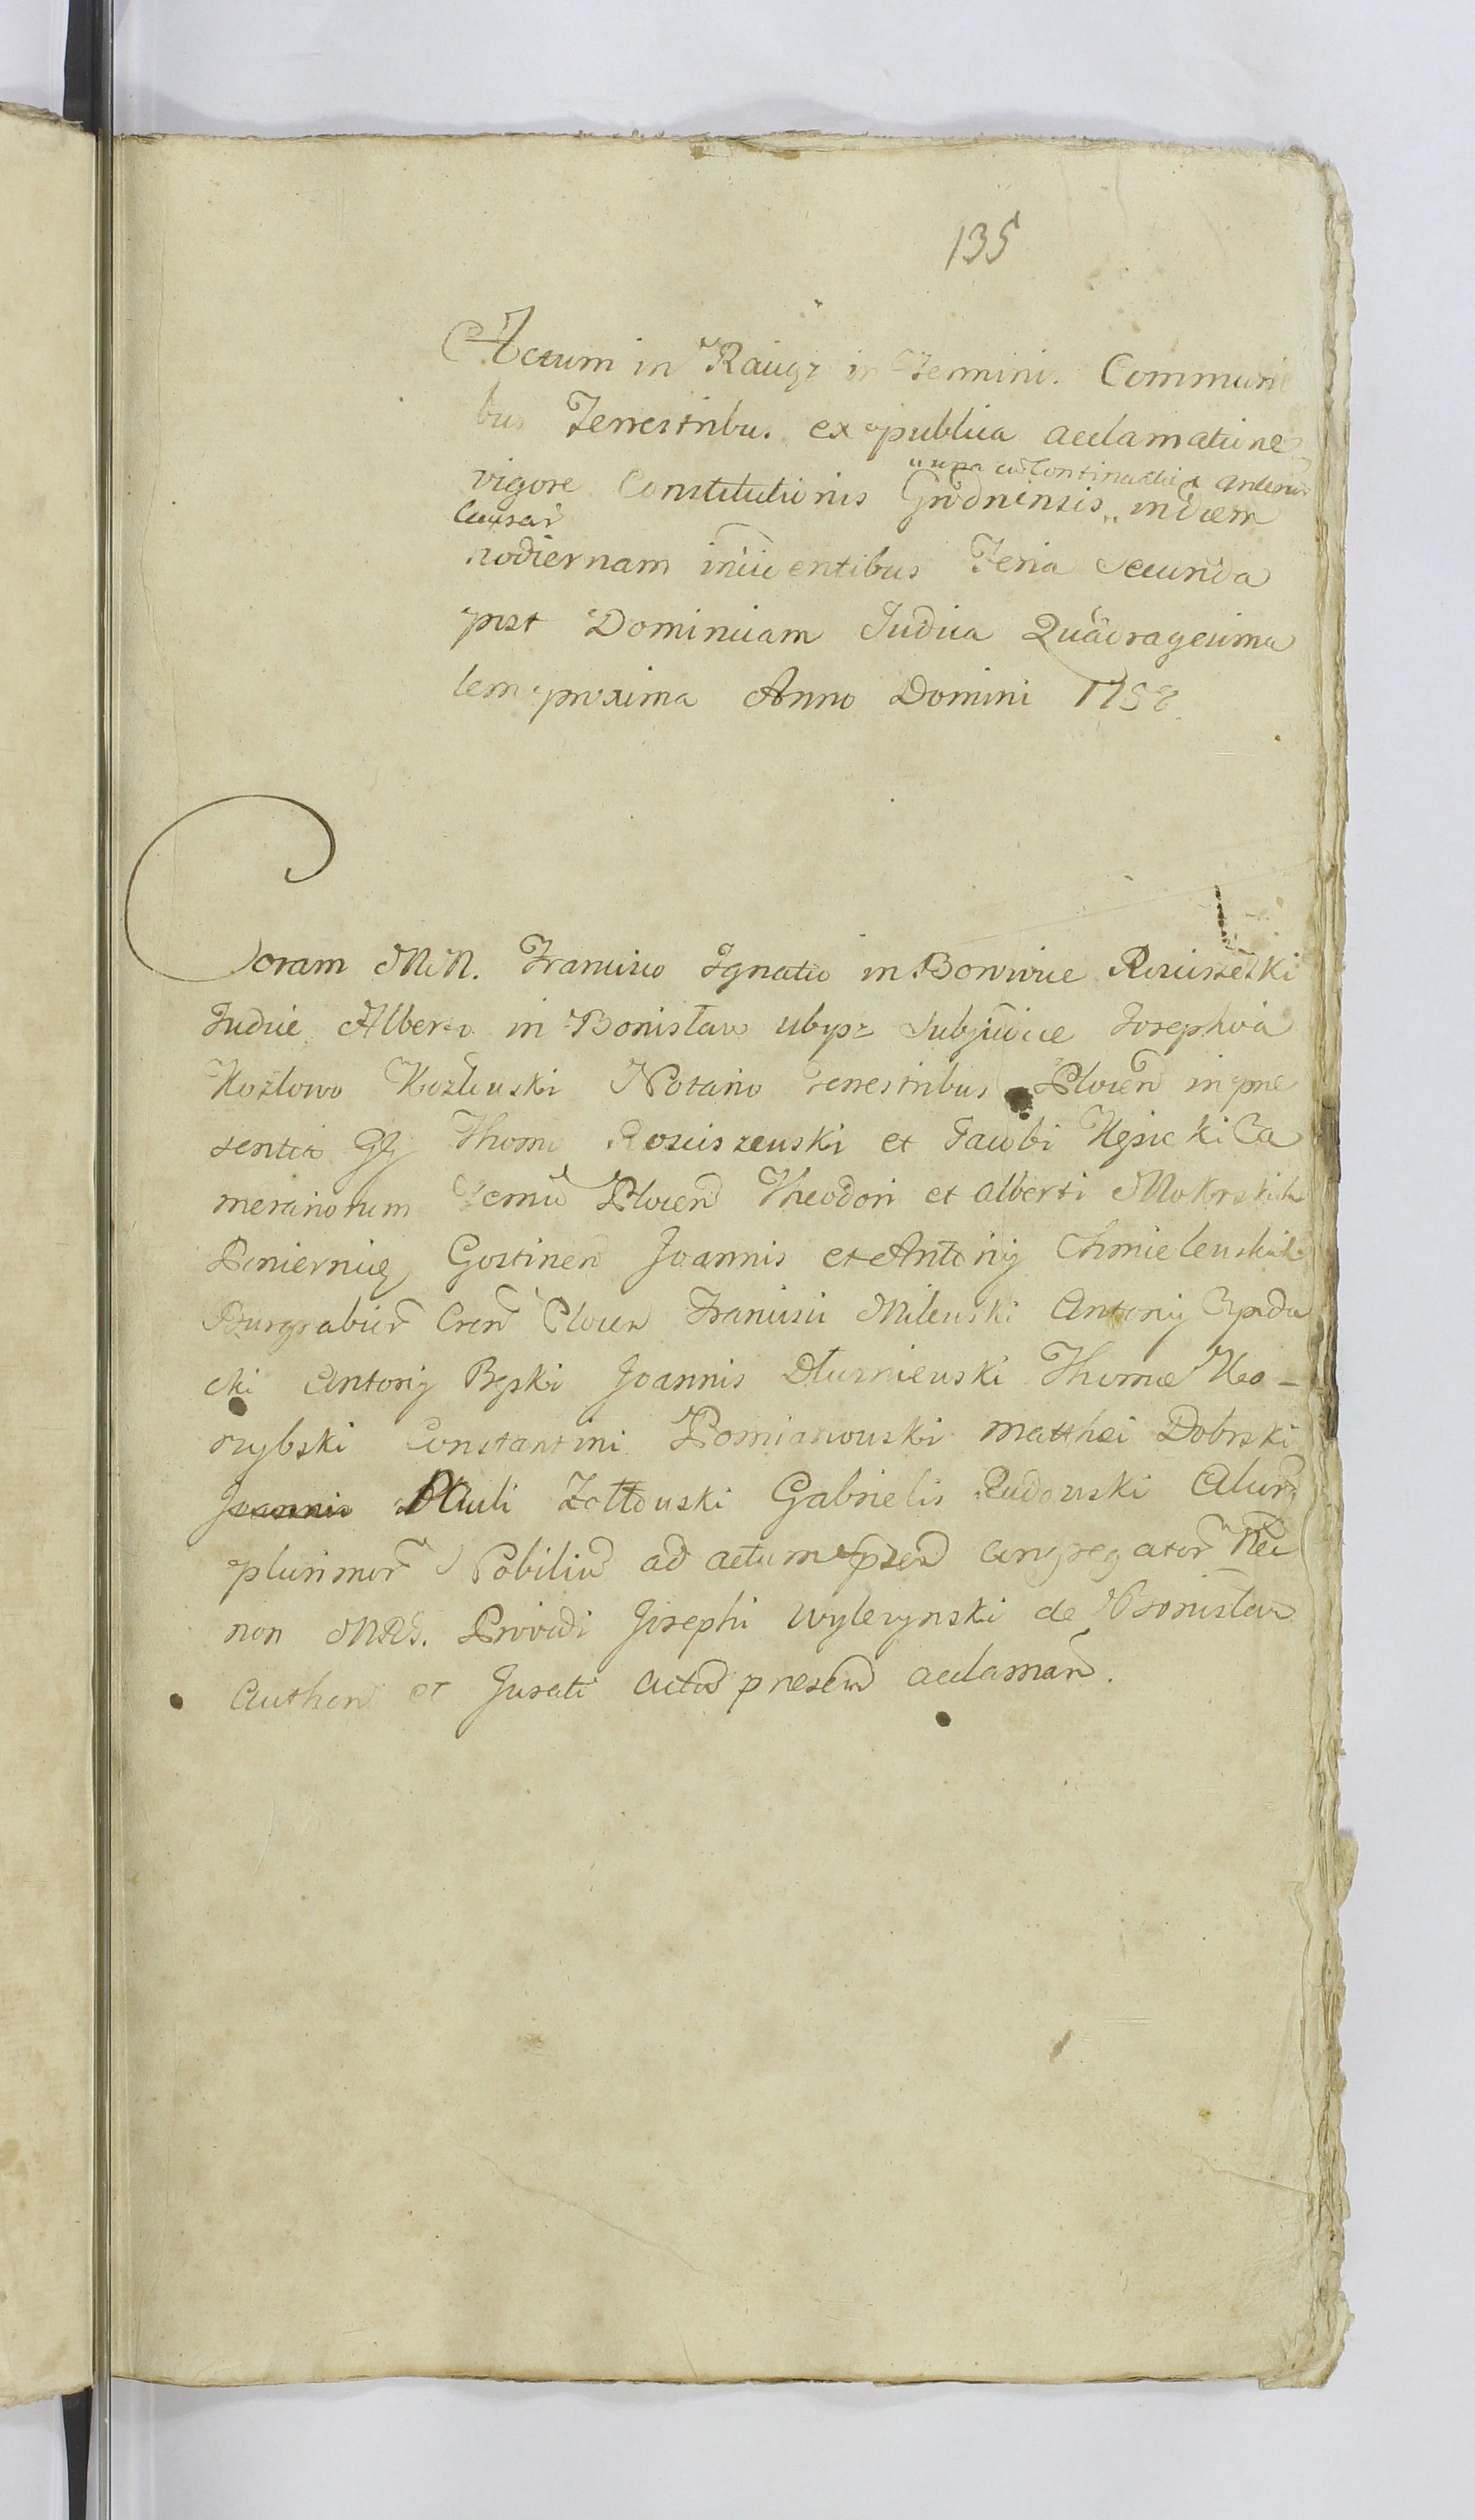 135
Actum in Raciąż in Terminis Communi
bus Terrestribus ex publica acclamatione
vigore Constitutionis Grodnensis in diem
causar
hodiernam inciden tibus Feria Secunda
post Dominicam Judica Quadragesima
lem proxima Anno Domini 175
Coram MM. Francisco Ignatio in Borwice Rościszewski
Judice Alberto in Bonisław Subjudice Josepho a
Kozłowo Kozłowski Notario Terrestribus Plocen in pre
sentia GG Thomæ Rościszewski et Jacobi Kęsicki Ca
merariorum Plocen Theodori et Alberti Mokrskich
Gostinen Joannis et Antonij Chmielewskich
Burgrabior Cren Plocen Francisci Milewski Antonij
cki Antonij Bęski Joannis Dłuzniewski Thomæ Ko-
rzybski Constantini Pomianowski Matthei Dobrski
Joannis Pauli Zołtowski Gabrielis Rudowski Alior
plurimor Nobiliu ad actum psen congregator Nec
non MRS. Providi Josephi Wylezynski de Bonisław
Authen et Jurati actu presen acclaman.